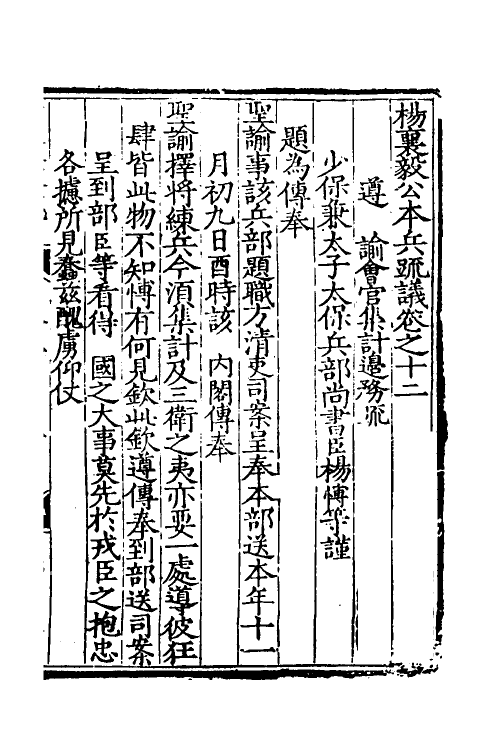 楊襄毅公本兵疏議卷之十二
遵　諭會官集計邊務疏
少保兼太子太保兵部尚書臣楊博等謹
題為傳奉
聖諭事該兵部題職方清吏司案呈奉本部送本年十一
月初九日酉時該　內閣傳奉
聖諭擇將練兵今須集計及三衛之夷亦要一處導彼狂
肆皆此物不知博有何見欽此欽遵傳奉到部送司案
呈到部臣等看得　國之大事莫先於戎臣之抱忠
各據所見蠢茲醜虜仰仗